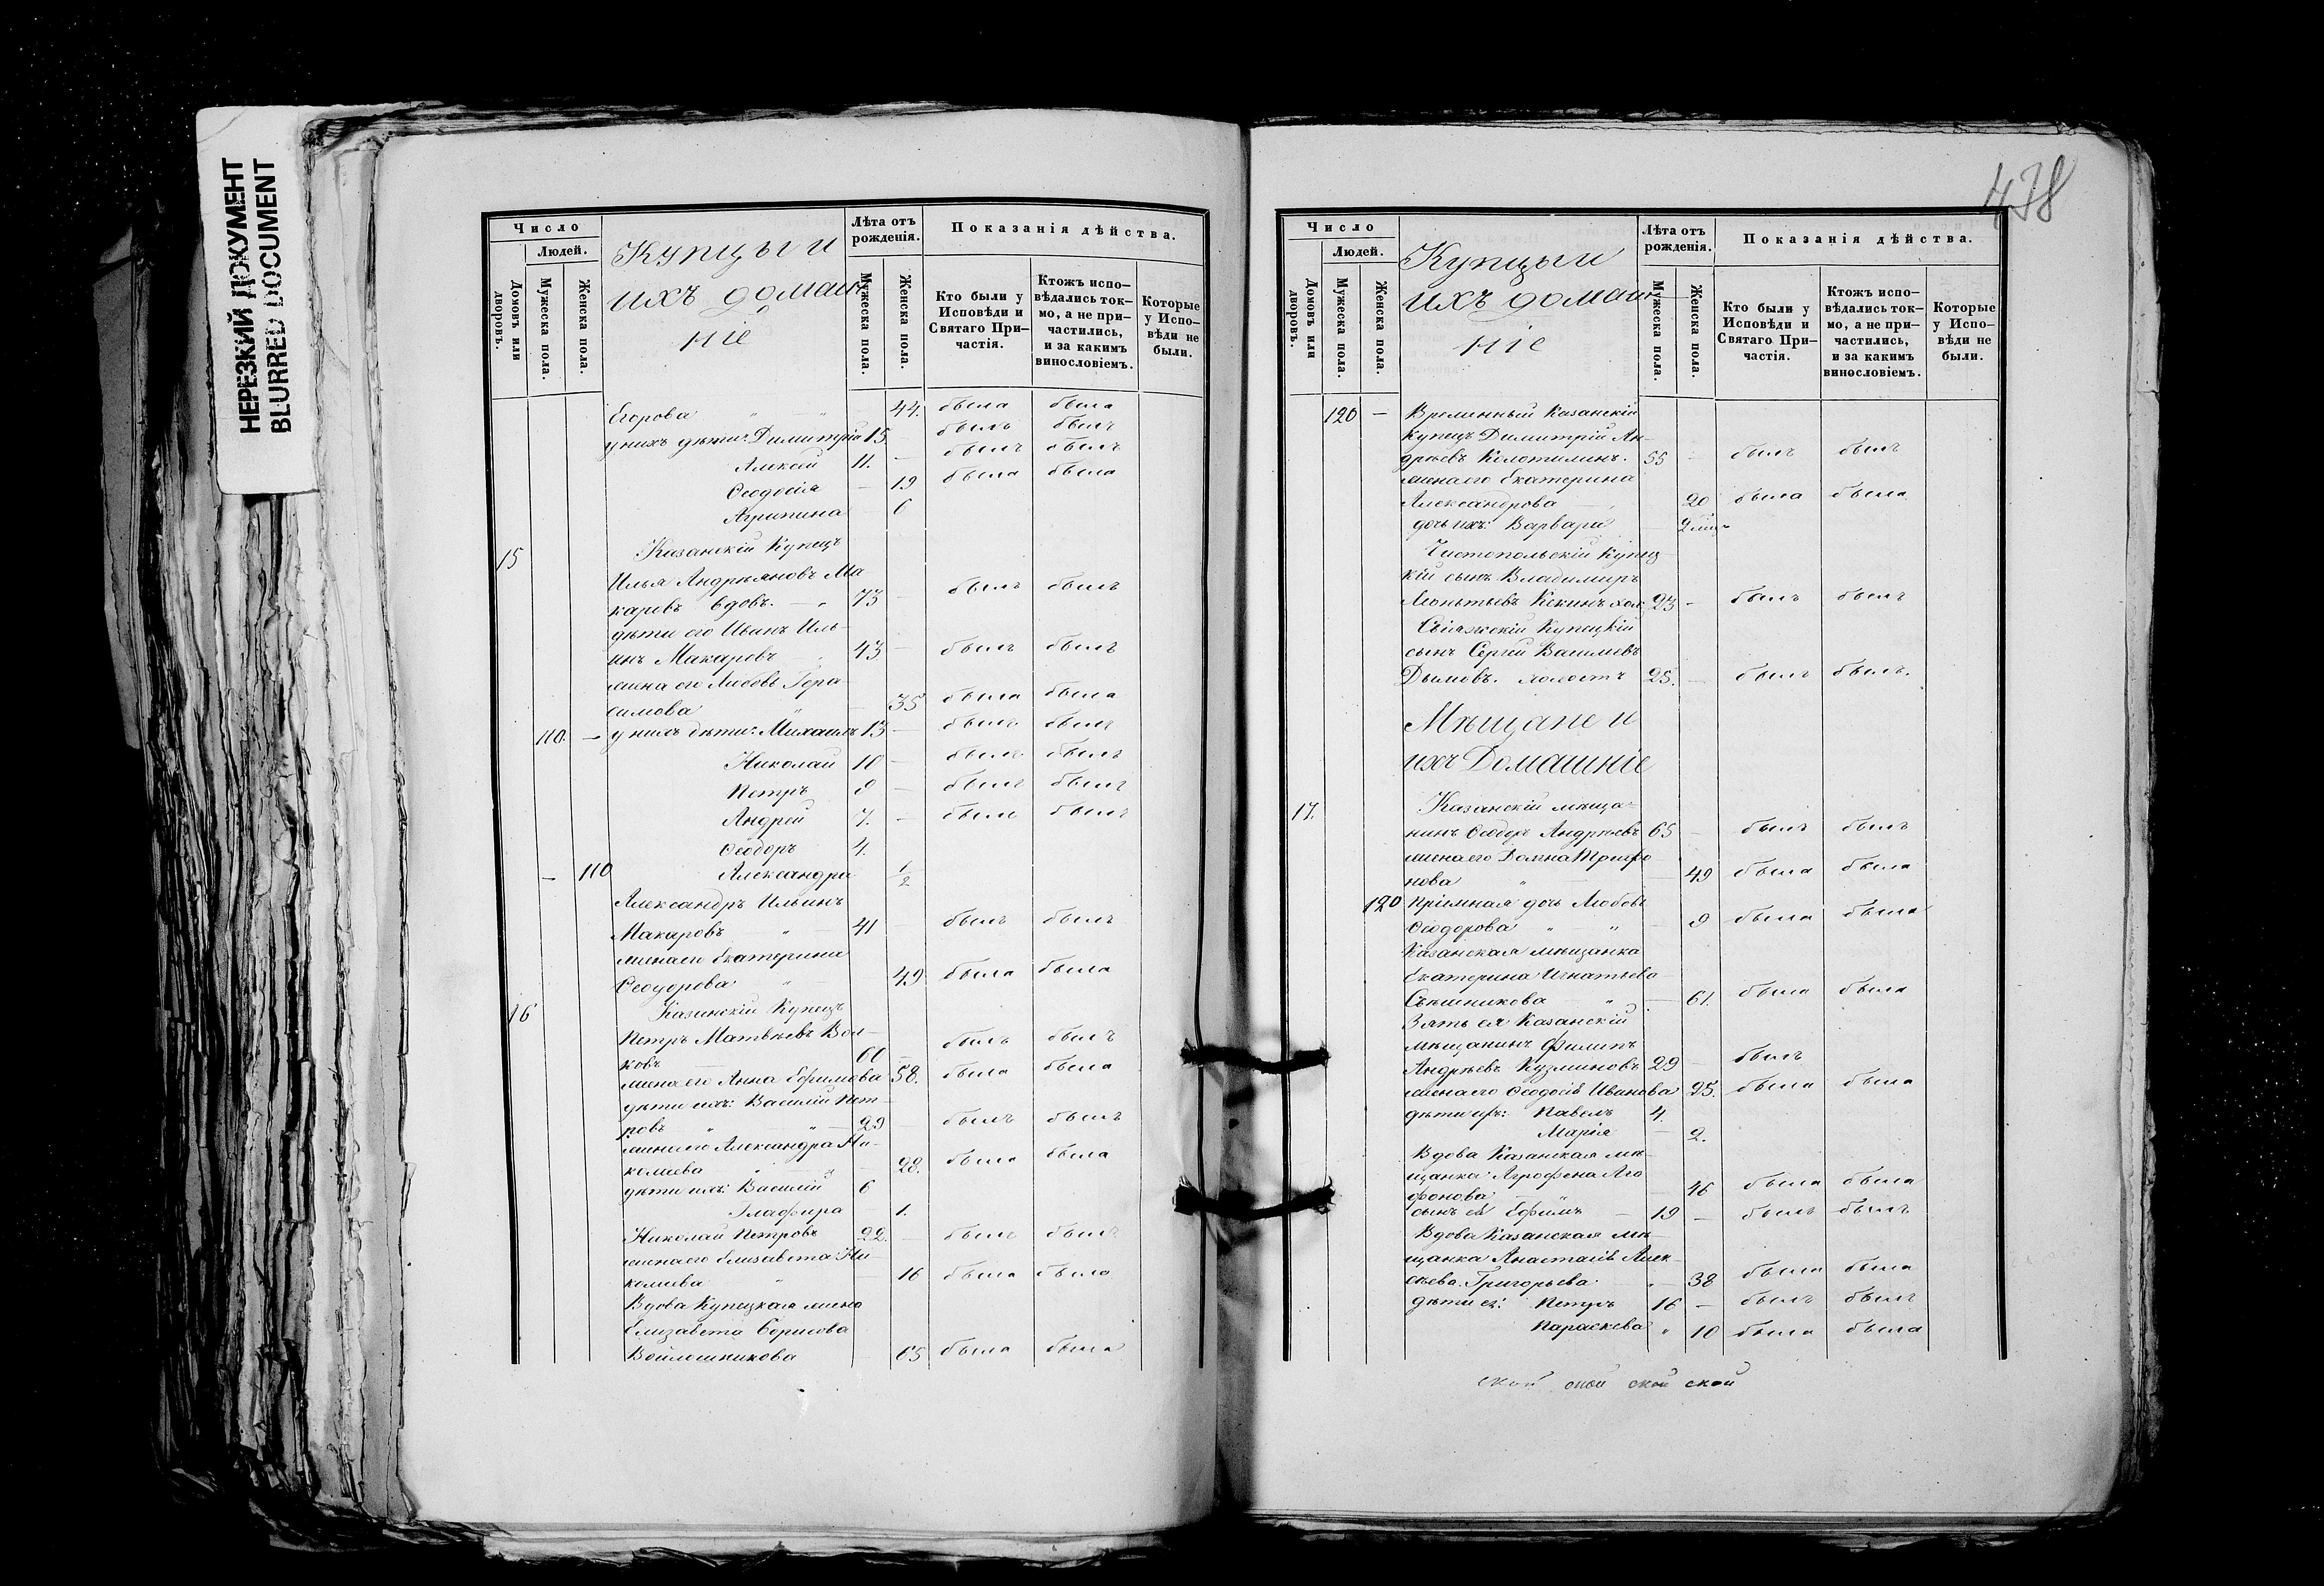 НЕРЕЗКИЙ ДОКУМЕНТ
BLURRED DOCUMENT
Число
Людей.
Домовъ или дворовъ.
Мужеска пола.
Женска пола.
Купцы и
ихъ домаш
ніе
Лѣта отъ рожденія.
Мужеска пола.
Женска пола.
Показанія дѣйства.
Кто были у Исповѣди и Святаго При–частія.
Ктожъ испо–вѣдались ток–мо, а не при–частились, и за какимъ винословіемъ.
Которые у Испо–вѣди не были.
Егорова " " 44. была была
у нихъ дѣти: Димитрій 15 – былъ былъ
Алексѣй 11. – былъ былъ
Ѳеодосія – 19 была была
Агрипина – 6
15 Казанскій Купецъ
Илья Андреяновъ Ма
каровъ вдовъ. – 73 – былъ былъ
дѣти его Иванъ Иль–
инъ Макаровъ 43 – былъ былъ
жена его Любовь Гера
симова " – 35 была была
110. – у нихъ дѣти: Михаилъ 13 – былъ былъ
Николай 10 – былъ былъ
Петръ 9 – былъ былъ
Андрей 7. – былъ былъ
Ѳеодоръ 4.
– 110 Александра 1/2
Александръ Ильинъ
Макаровъ " – 41 былъ былъ
жена его Екатерина
Ѳеодорова " – 49 была была
16 Казанскій Купецъ
Петръ Матвѣевъ Вол–
ковъ 60 – былъ былъ
жена его Анна Ефимова 58. была была
дѣти ихъ: Василій Пет–
ровъ " " – 29 былъ былъ
жена его Александра Ни–
колаева " " 28. была была
дѣти ихъ: Василій 6
Глафира – 1.
Николай Петровъ 22. – былъ былъ
жена его Елизавета Ни
колаева " – 16 была была
Вдова Купецкая жена
Елизавета Борисова
Войлошникова 65 была была
438
Число
Людей.
Домовъ или дворовъ.
Мужеска пола.
Женска пола.
Купцы и
ихъ домаш–
ніе
Лѣта отъ рожденія.
Мужеска пола.
Женска пола.
Показанія дѣйства.
Кто были у Исповѣди и Святаго При–частія.
Ктожъ испо–вѣдались ток–мо, а не при–частились, и за какимъ винословіемъ.
Которые у Испо–вѣди не были.
120 – Временный Казанскій
Купецъ Димитрій Ан–
дреевъ Колотилинъ. 55 – былъ былъ
жена его Екатерина
Александрова 20 была была
дочь ихъ: Варвара – 2 мѣс.
Чистопольскій Купец
кій сынъ Владимиръ
Леонтьевъ Кекинъ хол. 23 – былъ былъ
Свіяжскій Купецкій
сынъ Сергѣй Васильевъ
Дымовъ. холостъ 25. – былъ былъ.
Мѣщане и
ихъ Домашніе
17. Казанскій мѣща–
нинъ Ѳеодоръ Андреевъ 65 – былъ былъ
жена его Домна Трифо
нова " – 49 была была
120 Пріемная дочь Любовь
Ѳеодорова " " – 9 была была
Казанская мѣщанка
Екатерина Игнатьева
Съешникова " – 61. была была
Зять ея Казанскій
мѣщанинъ Филипъ
Андреевъ Кузминовъ 29 – былъ
жена его Ѳеодосія Иванова 25. была была
дѣти ихъ: Павелъ 4.
Марія – 2.
Вдова Казанская мѣ–
щанка Агрофена Ага
фонова – 46 была была
сынъ ея Ефимъ – 19 – былъ былъ
Вдова Казанская мѣ–
щанка Анастасія Алек–
сѣева Григорьева " – 38 была была
дѣти ея: Петръ 16 – былъ былъ
Параскева " 10 была была
ской ской ской ской